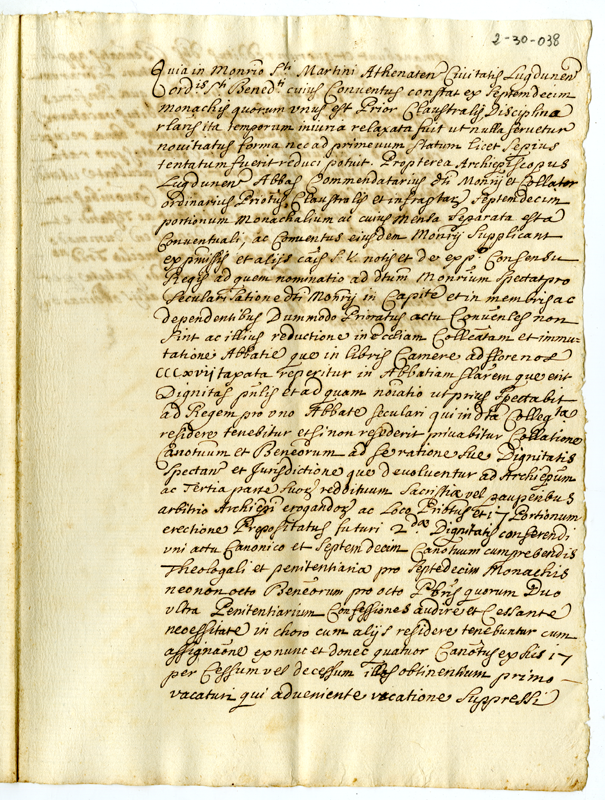 2-30-038
Quia in Monrio S.ti Martini Athenaten Civitatis Lugdunen
ordis S.ti Bened.ti cuius Conventus constat ex Septemdecim
monachis quorum vnus est Prior Claustralis Disciplina
rlaris ita temporum iniuria relaxata fuit ut nulla servetur
novitiatus forma nec ad primevum statum licet sepius
tentatum fuerit reduci potuit. Propterea Archiepiscopus
Lugdunen Abbas Commendatarius dti Monrij et Collator
ordinarius Priotus Claustralis et infraptar Septemdecim
portionum Monachalium ac cuius Mensa separata est a
Conventuali, ac Conventus eiusdem Monrij Supplicant
ex pmissis et alijs cais S. V. notis et de exp.o Consensu
Regis ad quem nominatio ad dtum Monrium spectat pro
secularisatione dti Monrij in Capite et in membris ac
dependentibus Dummodo Prioratus actu Conventles non
sint ac illius reductione in eccliam Collegatam et immu-
tatione Abbatie que in libris Camere ad floren
CCCxvij taxata reperitur in Abbatiam slarem que erit
Dignitas pnlis et ad quam noiatio ut prius spectabit
ad Regem pro vno Abbate seculari qui in dta Colleg.ta
residere tenebitur et si non resederit privabitur Collatione
Canotuum et Beneorum ad se ratione sue Dignitatis
spectan et Jurisdictione que devoluentur ad Archiepum
ac Tertia parte suor reddituum Sacristie vel pauperibus
arbitrio Archiepi erogandor ac Loco Priotus et 17 Portionum
erectione Propositatus futuri 2.dae Dignitatis conferendi
vni actu Canonico et Septemdecim Canotuum cumprehendis
Theologali et penitentiaria pro Septedecim Monachis
necnon octo Beneorum pro octo Pbris quorum Duo
vltra Penitentiarium Confessiones audire et Cessante
necessitate in choro cum alijs residere tenebuntur cum
assignaone ex nunc et donec quatuor Canotus ex hiis 17
per cessum vel decessum illos obtinentium primo
vacaturi qui adveniente vacatione Suppressi